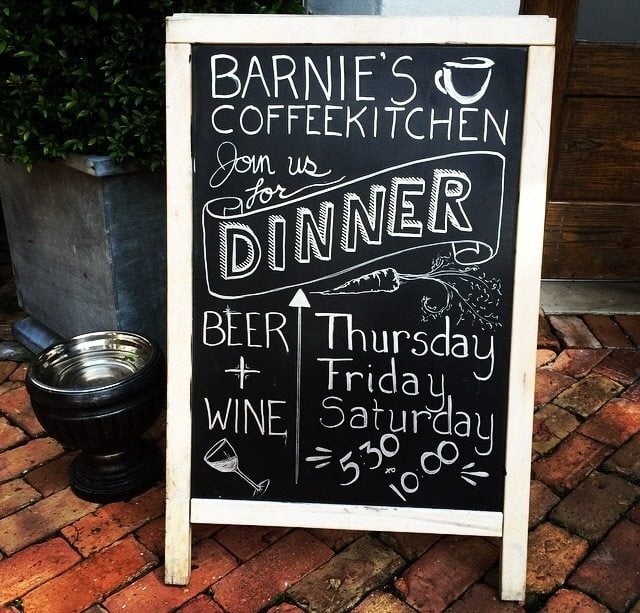 BARNIE'S
COFFEEKITCHEN
Join us
for
DINNER
BEER
+
WINE
Thursday
Friday
Saturday
5:30 to 10:00